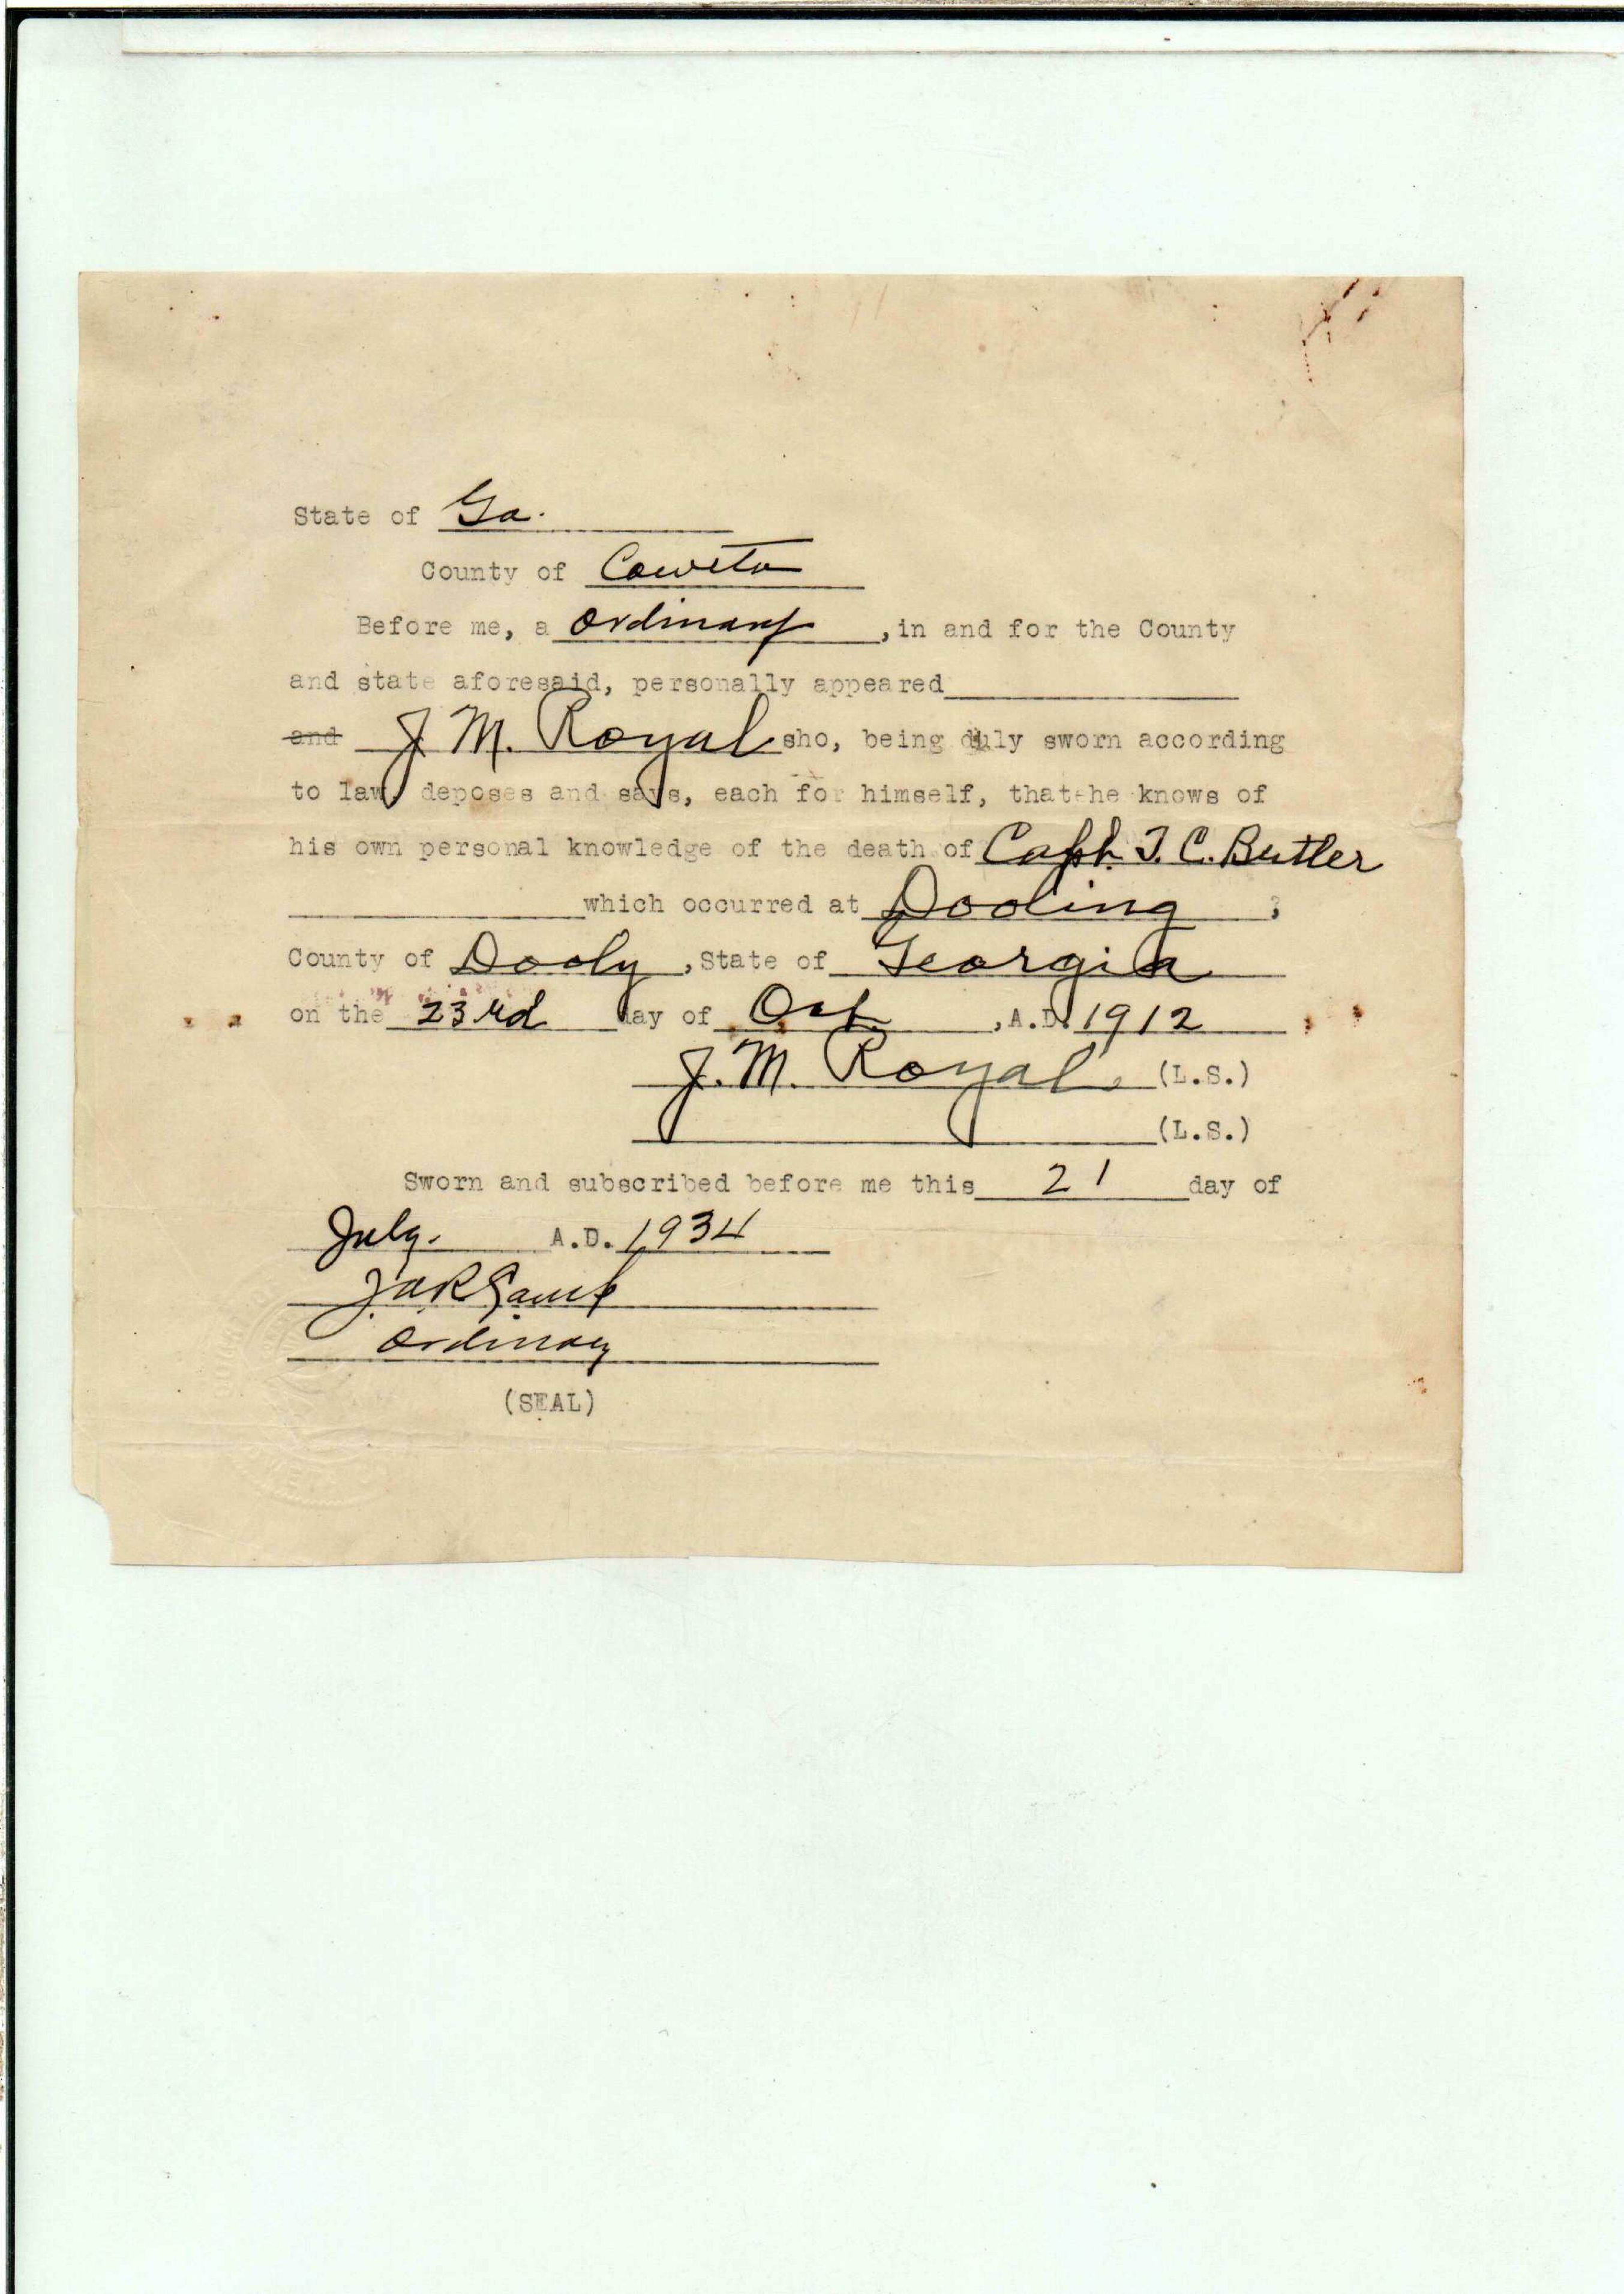 State of Ga.
County of Coweta
Before me, a Ordinary, in and for the County
and state aforesaid, personally appeared
and J M. Royal sho, being duly sworn according
to law, deposes and says, each for himself, that he knows of
his own personal knowledge of the death of Capt. T. C. Butler
which occurred at Dooling ;
County of Dooly, State of Georgia
on the 23rd day of Oct, A.D. 1912
J. M. Royal. (L.S.)
(L.S.)
Sworn and subscribed before me this 21 day of
July. A.D. 1934
Ordinary
(SEAL)